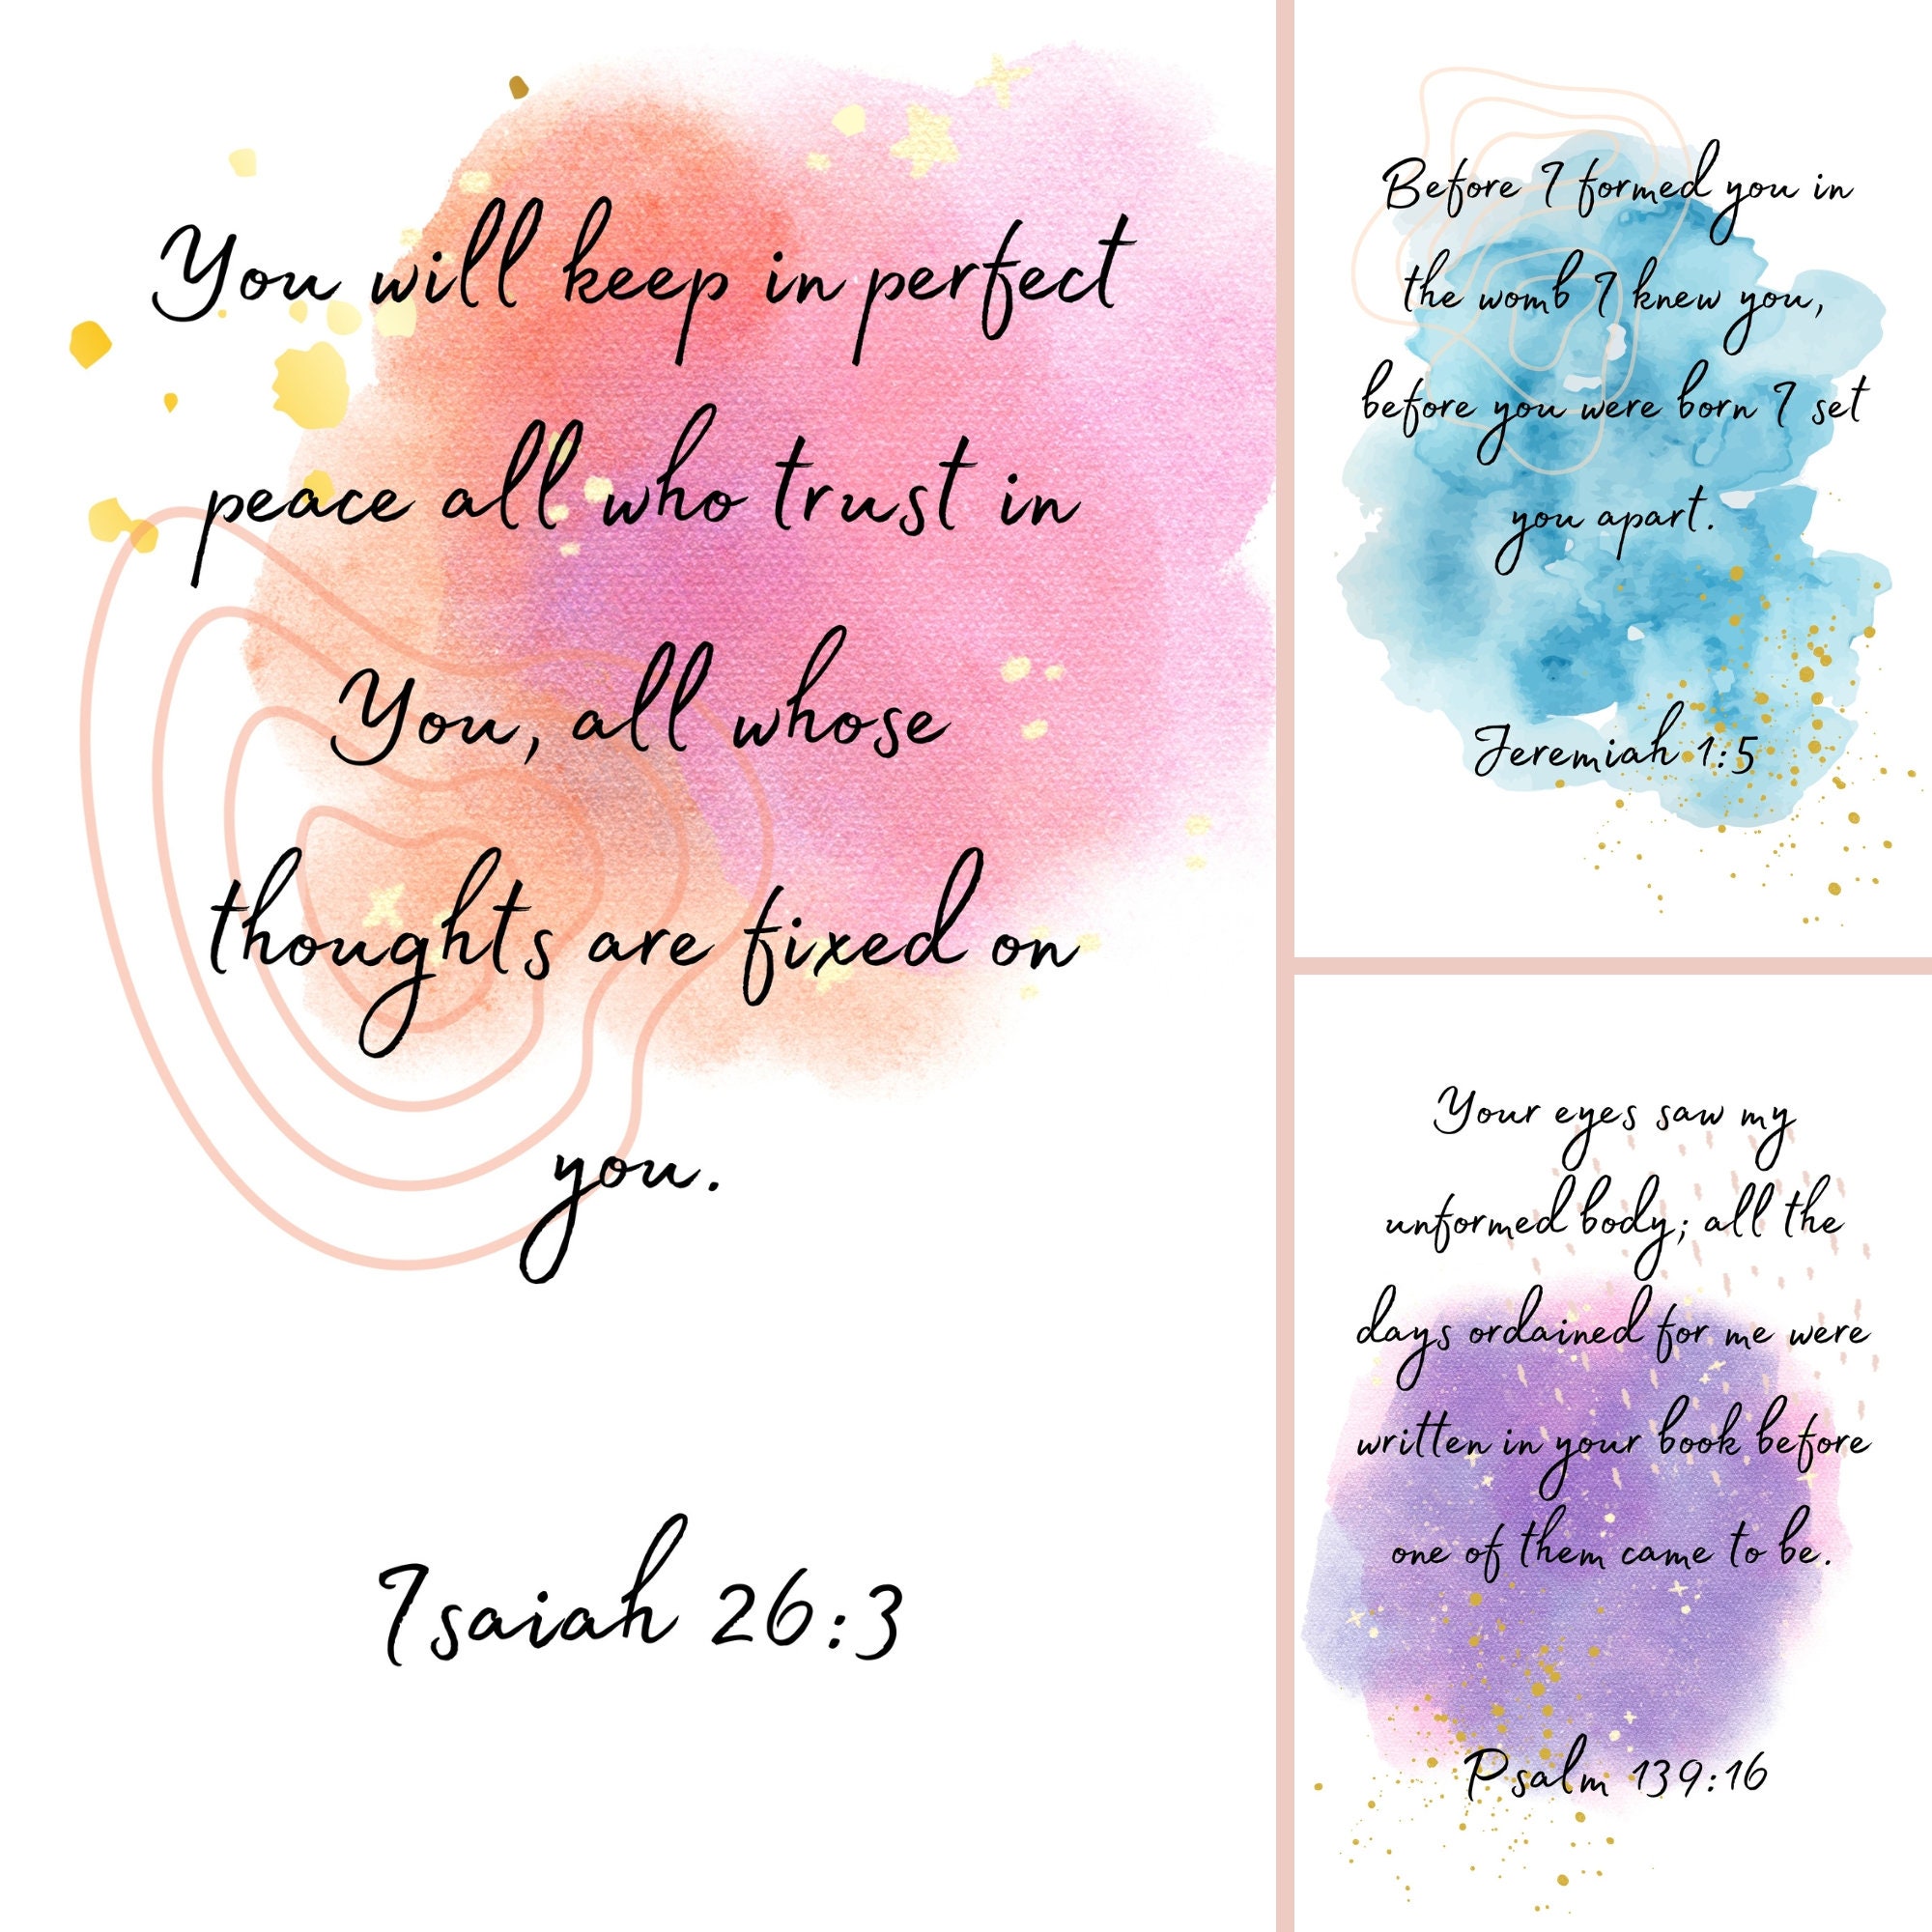 You will keep in perfect
peace all who trust in
You, all whose
thoughts are fixed on
you.
Isaiah 26:3
Before I formed you in
the womb I knew you,
before you were born I set
you apart.
Jeremiah 1:5
Your eyes saw my
unformed body; all the
days ordained for me were
written in your book before
one of them came to be.
Psalm 139:16